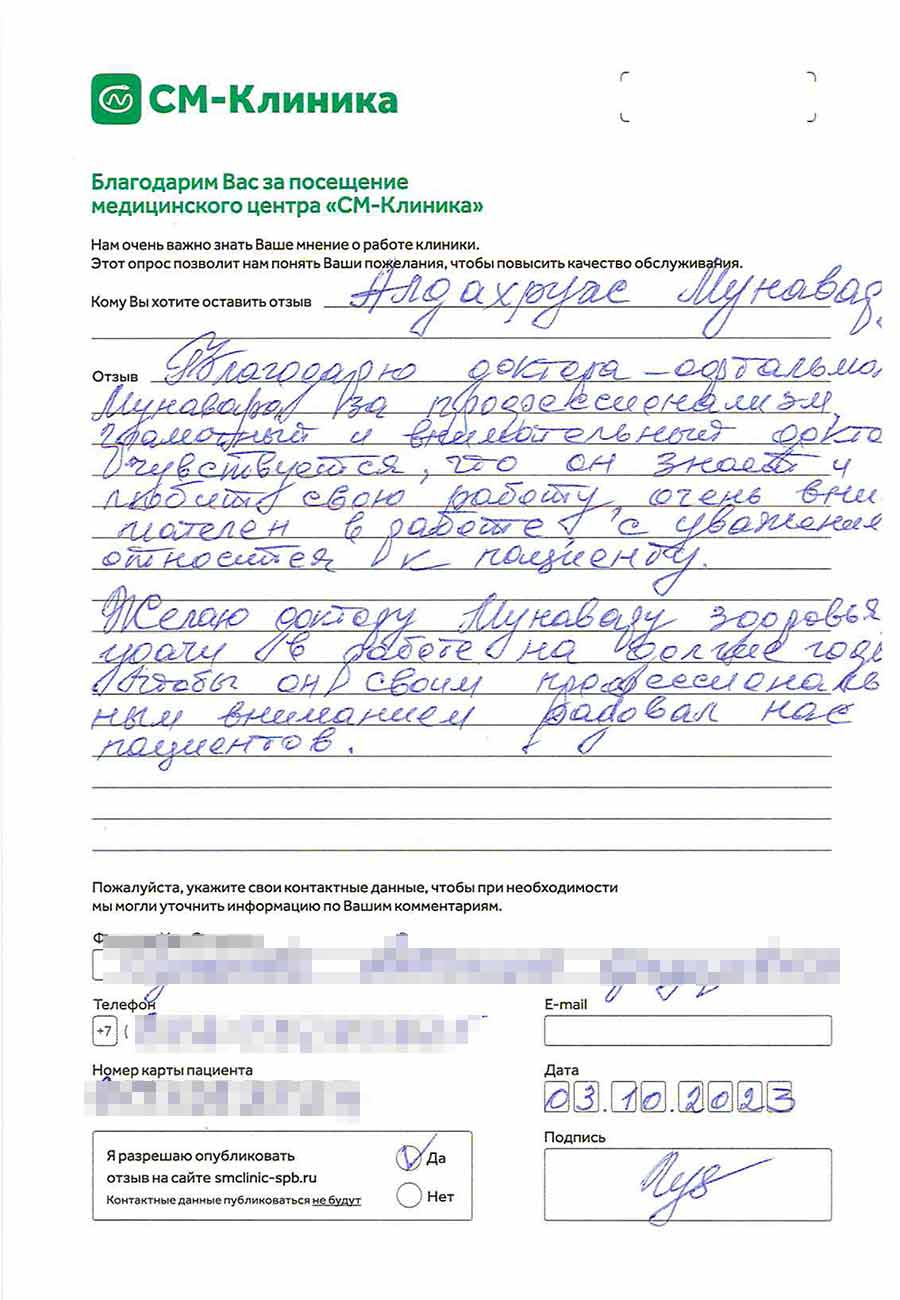 СМ-Клиника
Благодарим Вас за посещение
медицинского центра «СМ-Клиника»
Нам очень важно знать Ваше мнение о работе клиники.
Этот опрос позволит нам понять Ваши пожелания, чтобы повысить качество обслуживания.
Кому Вы хотите оставить отзыв Алдахруас Мунавад
Отзыв Благодарю доктора - офтальмо
Мунавара за профессионализм,
грамотный и внимательный докто
Чувствуется, что он знает и
любит свою работу, очень вни
мателен в работе, с уважения
относится к пациенту.
Желаю доктору Мунаваду здоровья
удачи в работе на долгие годы
Чтобы он своим профессиональ
ным вниманием радовал нас
пациентов.
Пожалуйста, укажите свои контактные данные, чтобы при необходимости
мы могли уточнить информацию по Вашим комментариям.
Телефон E-mail
+7 (
Номер карты пациента Дата
03.10.2023
Подпись
Я разрешаю опубликовать
отзыв на сайте smclinic-spb.ru
Контактные данные публиковаться не будут
Да
Нет